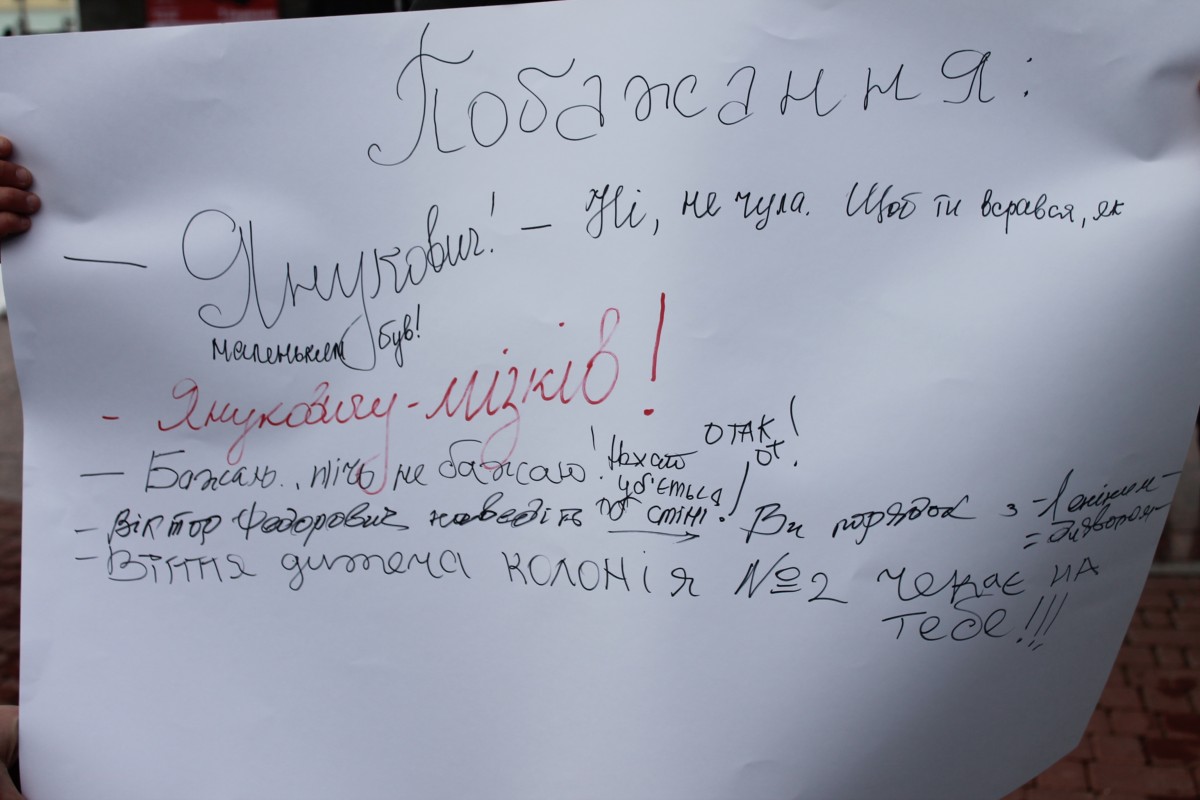 Побажання:
— Янукович! — Ні, не чула. Щоб ти всрався, як
маленьким був!
- Януковичу - мізків!
— Бажаю.. нічо не бажаю! Нехай уб'ється от стіні! ОТАК от!
- Віктор Федорович наведіть → Ви порядок з -Леніним-
- Вінтя дитяча колонія №2 чекає на
тебе!!!